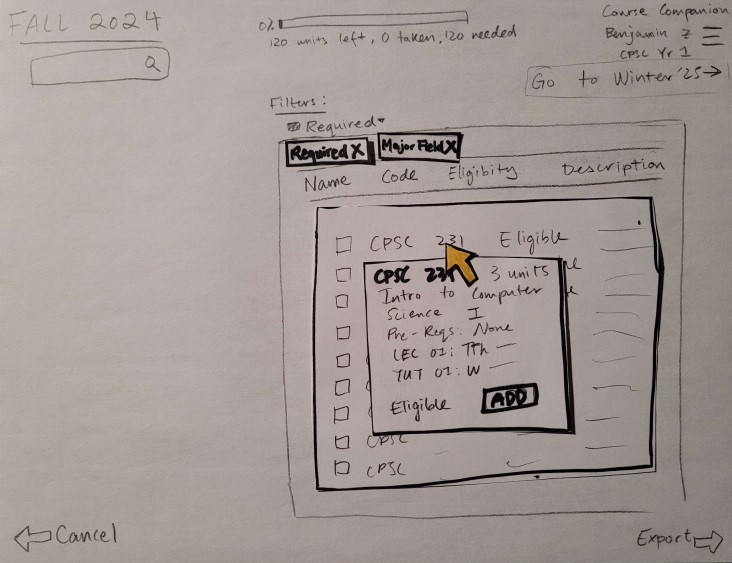 FALL 2024
0%
120 units left, 0 taken, 120 needed
Course Companion
Benjamin Z
CPSC Yr 1
Go to Winter '25→
Filters:
Required
Required X
Major Field X
Name Code Eligibity Description
CPSC 231 Eligible
CPSC 231 3 units
Intro to Computer
Science I
Pre-Reqs: None
LEC 01: TTh
TUT 01: W
Eligible ADD
CPSC
CPSC
Cancel
Export